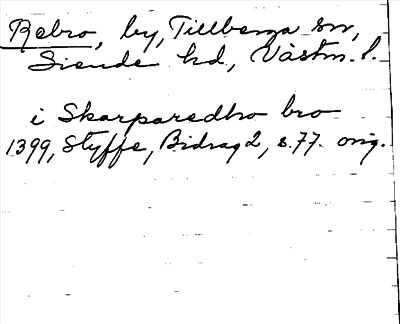 Rebro, by, Tillberga sn,
Siende hd, Västm. l.
i Skarparedhro bro
1399, Styffe, Bidrag 2, s. 77. orig.